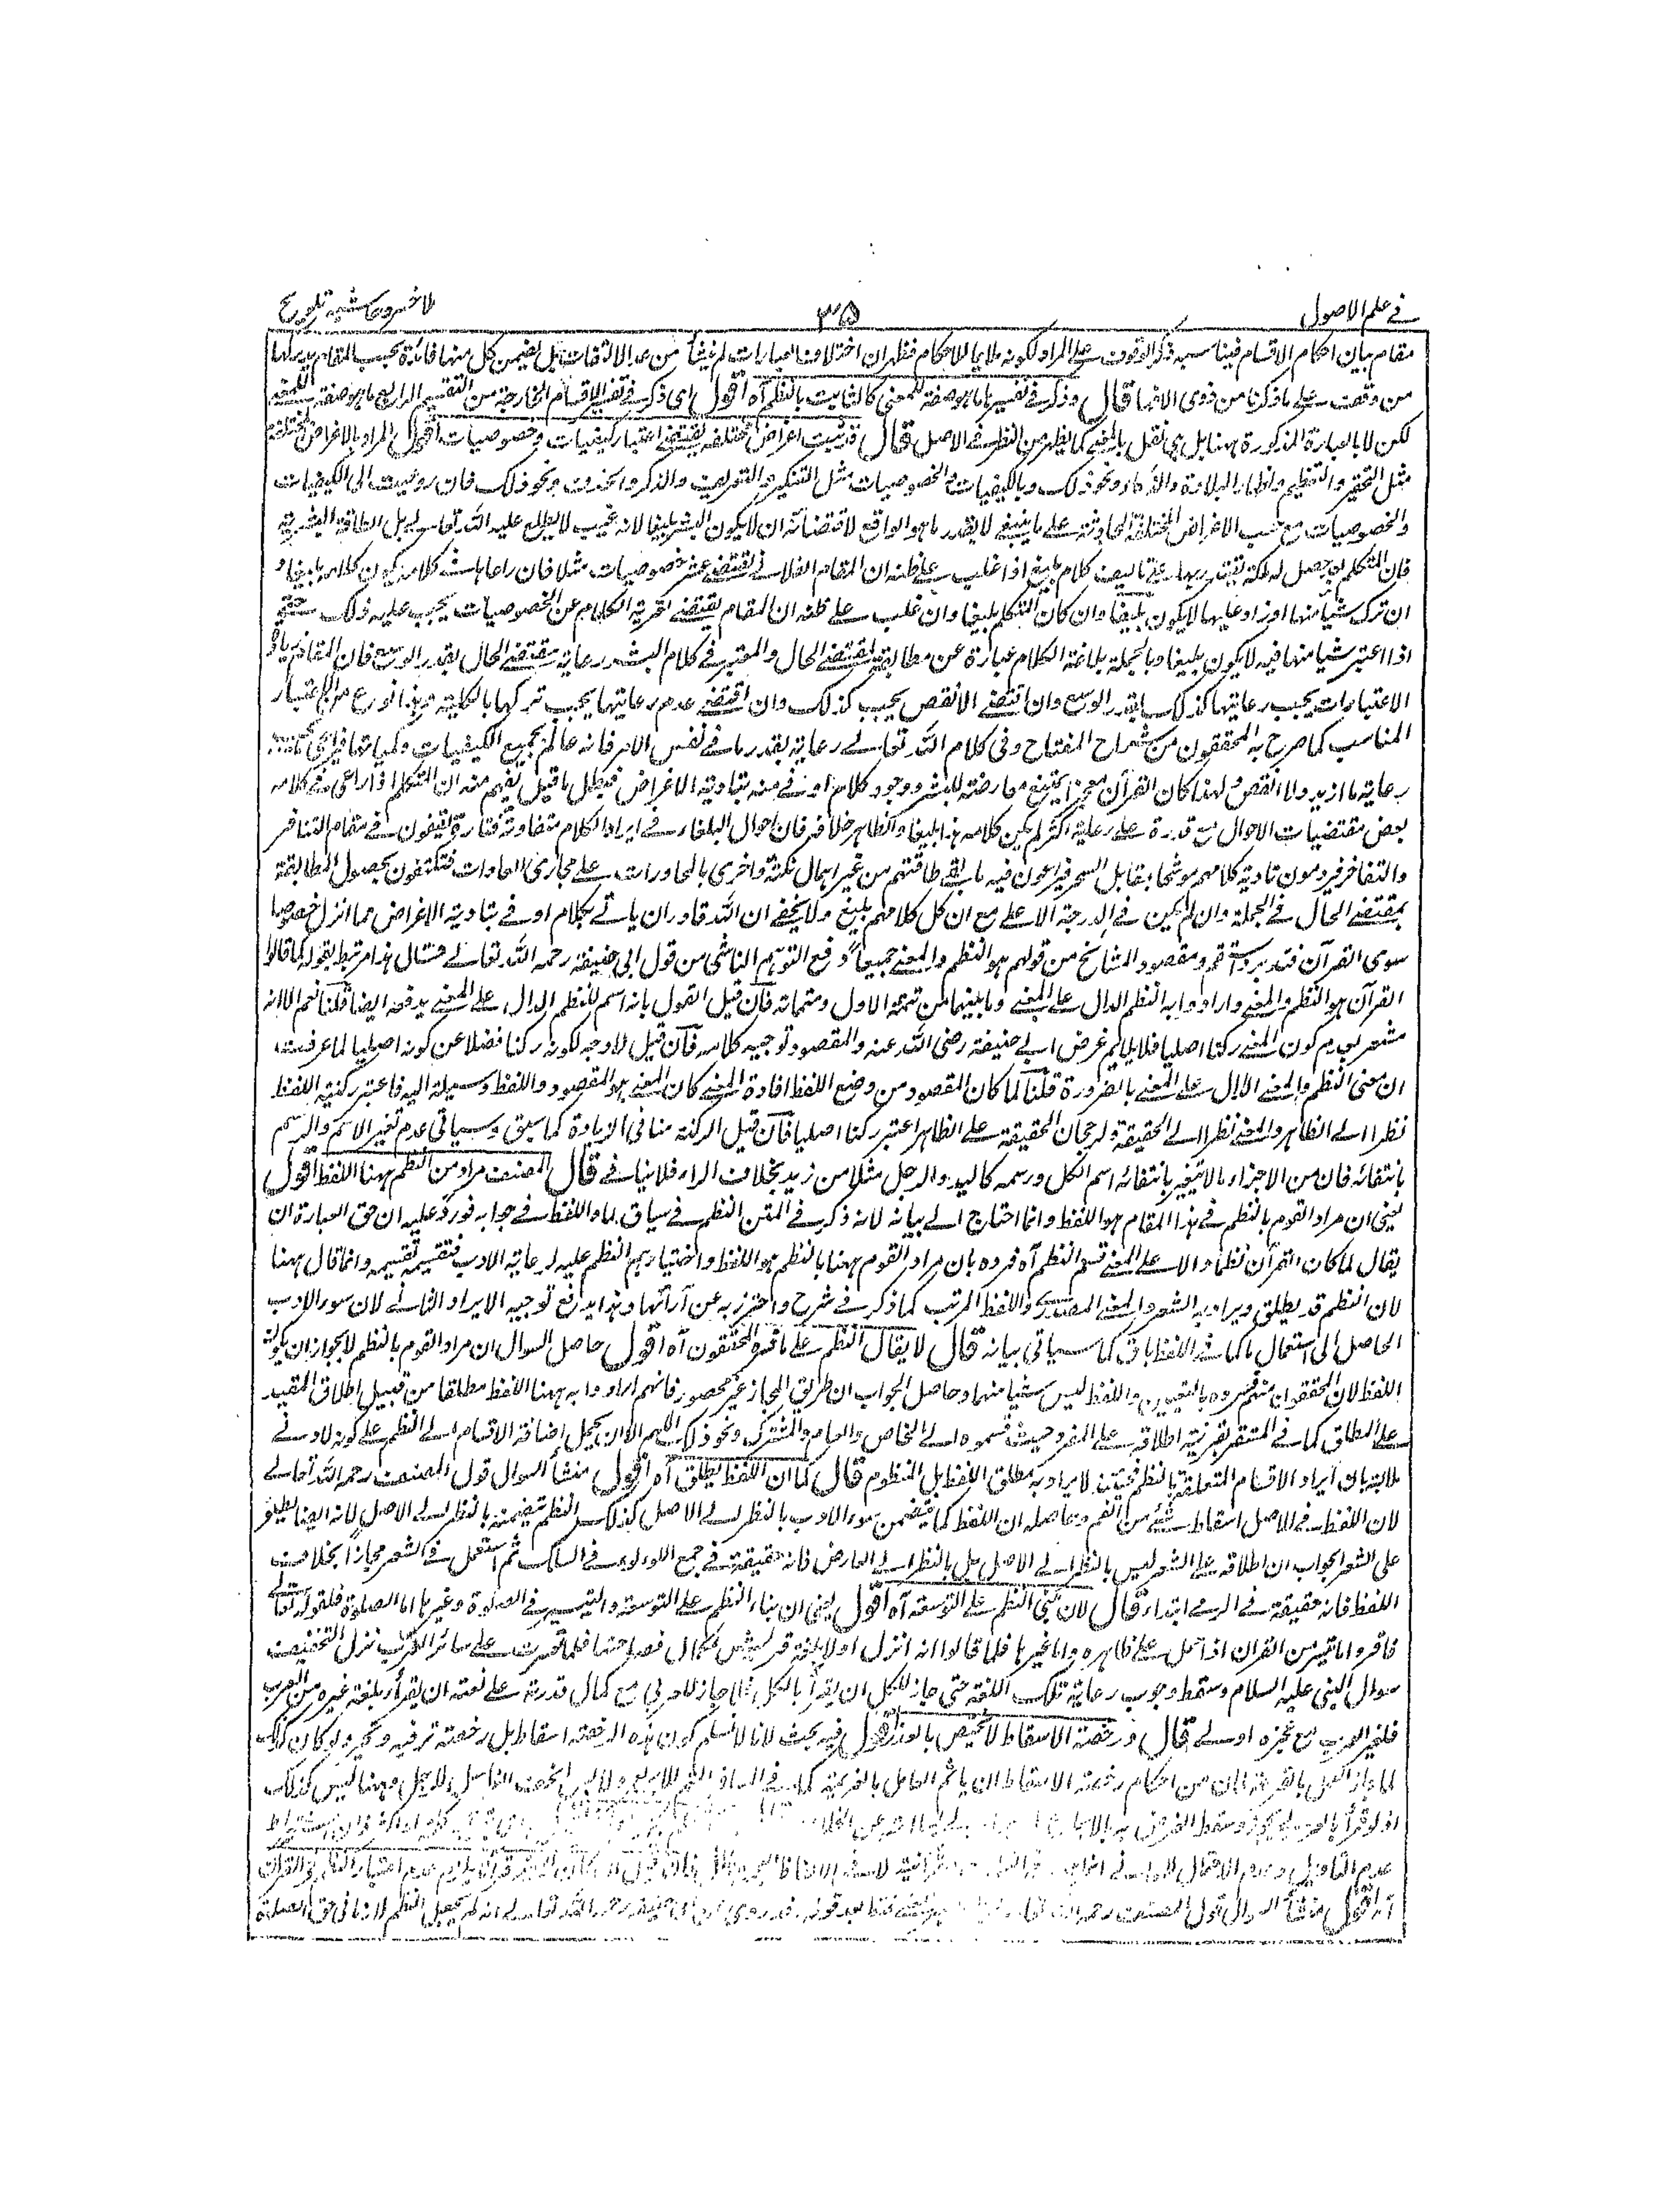 في علم الاصول
٣٥
ملا خسرو حاشيه تلويح
مقام بيان احكام الاقسام فيناسبه ذكر الوقوف على المراد لكونه ملايما للاحكام فظهر ان اختلاف العبارات لم ينشأ من عدم الالتفات بل يضمن كل منها فائدة بحسب المقام يدركها
من وقف على ما ذكرنا من ذوى الافهام قال وذكر في تفسيرها ما هو صفة للمعنى كالثابت بالنظم آه اقول اى ذكر في تفسير الاقسام الخارجة من التقسيم الرابع ما هو صفة للمعنى
لكن لا بالعبارة المذكورة ههنا بل هي نقل بالمعنى كما يظهر من النظر في الاصل قال قد ثبت اغراض مختلفة يقتضى اعتبار كيفيات وخصوصيات اقول المراد بالاغراض المختلفة
مثل التحقير والتعظيم واظهار البلادة والذكاء ونحو ذلك وبالكيفيات والخصوصيات مثل التنكير والتعريف والذكر والحذف ونحو ذلك فان روعيت الى الكيفيات
والخصوصيات مع حسب الاغراض المختلفة الحادثة على ما ينبغى لا بقدر ما هو الواقع لاقتضائه ان لا يكون البشر بليغا لانه غيب لا يطلع عليه الا الله تعالى بل الطاقة البشرية
فان المتكلم لو حصل له ملكة يقتدر بها على تاليف كلام بليغ اذا غلب على ظنه ان المقام الفلانى يقتضى عشر خصوصيات مثلا فان راعاها في كلامه يكون كلامه بليغا و
ان ترك شيأ منها او زاد عليها لا يكون بليغا وان كان المتكلم بليغا وان غلب على ظنه ان المقام يقتضى تعرية الكلام عن الخصوصيات يجب عليه ذلك حتى
اذا اعتبر شيا منها فيه لا يكون بليغا وبالجملة بلاغة الكلام عبارة عن مطابقته لمقتضى الحال والمعتبر في كلام البشر رعاية مقتضى الحال بقدر الوسع فان اقتضى زيادة
الاعتبارات يجب رعايتها كذلك بقدر الوسع وان اقتضى الانقص يجب كذلك وان اقتضى عدم رعايتها يجب تركها بالكلية وهذا نوع من الاعتبار
المناسب كما صرح به المحققون من شراح المفتاح وفى كلام الله تعالى رعاية بقدر ما في نفس الامر فانه عالم بجميع الكيفيات وكمياتها فيراعى
رعاية ما ازيد ولا انقص ولهذا كان القرآن معجزا يمتنع معارضته للبشر ووجود كلام اوفى منه بتادية الاغراض فبطل ما قيل يفهم منه ان المتكلم اذا راعى في كلامه
بعض مقتضيات الاحوال مع قدرة على رعاية اكثر لم يكن كلامه هذا بليغا والظاهر خلافه فان احوال البلغاء في ايراد الكلام متفاوتة فتارة يقفون في مقام التنافر
والتفاخر فيرومون تادية كلامهم موشحا بمقابل السحر فيراعون فيه ما يفى طاقتهم من غير اهمال نكتة واخرى بالمحاورات على مجارى العادات فتكتفون بحصول المطابقة
بمقتضى الحال في الجملة وان لم يكن في الدرجة الاعلى مع ان كل كلامهم بليغ ولا يخفى ان الله قادر ان ياتى بكلام اوفى بتادية الاغراض مما انزل خصوصا
سوى القرآن فتدبر واستقم ومقصود المشائخ من قولهم هو النظم والمعنى جميعا دفع التوهم الناشى من قول ابى حنيفة رحمه الله تعالى قال هذا مرتبط بقوله كما قالوا
القرآن هو النظم والمعنى وارادوا به النظم الدال على المعنى وما بينهما من تتمة الاول ومتمماته فان قيل القول بانه اسم للنظم الدال على المعنى يدفعه ايضا قلنا نعم الا انه
مشعر بعدم كون المعنى ركنا اصليا فلا يلايم غرض ابى حنيفة رضى الله عنه والمقصود توجيه كلامه فان قيل لا وجه لكونه ركنا فضلا عن كونه اصليا لما عرفت
ان معنى النظم والمعنى الدال على المعنى بالضرورة قلنا لما كان المقصود من وضع اللفظ افادة المعنى كان المعنى هو المقصود واللفظ وسيلة اليه فاعتبر ركنية اللفظ
نظرا الى الظاهر والمعنى نظرا الى الحقيقة ولرجحان الحقيقة على الظاهر اعتبر ركنا اصليا فان قيل الركنية منافى الزيادة كما سبق وسياتى عدم تغير الاسم والرسم
بانتفائه فان من الاجزاء ما لا يتغير بانتفائه اسم الكل ورسمه كاليد والرجل مثلا من زيد بخلاف الراء فلا ينافى قال المصنف مراده من النظم ههنا اللفظ اقول
يعنى ان مراد القوم بالنظم في هذا المقام هو اللفظ وانما احتاج الى بيانه لانه ذكر في المتن النظم في سياق لما واللفظ في جوابه فورد عليه ان حق العبارة ان
يقال لما كان القرآن نظما دالا على المعنى قسم النظم آه فرده بان مراد القوم ههنا بالنظم هو اللفظ واختيارهم النظم عليه لرعاية الادب فتقسيمه تقسيمه وانما قال ههنا
لان النظم قد يطلق ويراد به الشعر والمعنى المصدرى واللفظ المرتب كما ذكر في شرح واحترز به عن آرائها وهذا يدفع توجيه الايراد الثانى لان سوء الادب
الحاصل الى استعمال ما كما في اللفظ باق كما سياتى بيانه قال لا يقال النظم على ما فسره المحققون آه اقول حاصل السوال ان مراد القوم بالنظم لا يجوز ان يكون
اللفظ لان المحققون منهم فسروه بالتعبيرين واللفظ ليس شيا منهما وحاصل الجواب ان طريق المجاز غير محصور فانهم ارادوا به ههنا اللفظ مطلقا من قبيل اطلاق المقيد
على المطلق كما في المشفر بقرينة اطلاقه على المفرد حيث قسموه الى الخاص والعام والمشترك ونحو ذلك اللهم الا ان يحمل اضافة الاقسام الى النظم على كونه لادنى
ملابسة بان ايراد الاقسام المتعلقة بالنظم فحينئذ لا يراد به مطلق اللفظ بل المنظوم قال كما ان اللفظ يطلق آه اقول منشأ السوال قول المصنف رحمه الله تعالى
لان اللفظ في الاصل اسقاط شئ من الفم وحاصله ان اللفظ كما يتضمن سوء الادب بالنظر الى الاصل كذلك النظم يتضمنه بالنظر الى الاصل لانه ايضا يطلق
على الشعر الجواب ان اطلاقه على الشعر ليس بالنظر الى الاصل بل بالنظر الى العارض فانه حقيقة في جمع اللؤلؤ في السلك ثم استعمل في الشعر مجازا بخلاف
اللفظ فانه حقيقة في الرمى ابتداء قال لان مبنى النظم على التوسعة آه اقول يعنى ان بناء النظم على التوسعة والتيسير في الصلوة وغيرها اما الصلوة فلقوله تعالى
فاقروا ما تيسر من القران اذا حمل على ظاهره واما غيرها فلما قالوا انه انزل اولا بلغة قريش لكمال فصاحتها فلما تعسرت على سائر العرب نزل التخفيف
سوال النبى عليه السلام وسقط وجوب رعاية تلك اللغة حتى جاز للكل ان يقرأ بالكل فاذا جاز للعربى مع كمال قدرته على لغته ان يقرأ بلغة غيره من العرب
فلغير العرب مع عجزه اولى قال ورخصة الاسقاط لا تختص بالعذر اقول فيه بحث لانا لا نسلم كون هذه الرخصة اسقاط بل رخصة ترفيه وتخير ولو كان كذلك
لما جاز العمل بالعزيمة لان من احكام رخصة الاسقاط ان ياثم العامل بالعزيمة كما في المسافر لليتم للاربع ههنا ليس كذلك
اذ لو قرأ بالعربى يجوز وسقط الفرض به بالاجماع
عدم التاويل وعدم الاحتمال يلزم عدم اعتبار النظم في القرآن
آه اقول منشأ السوال قول المصنف رحمه الله تعالى رحمه الله تعالى انه لم يجعل النظم لازما في حق الصلوة